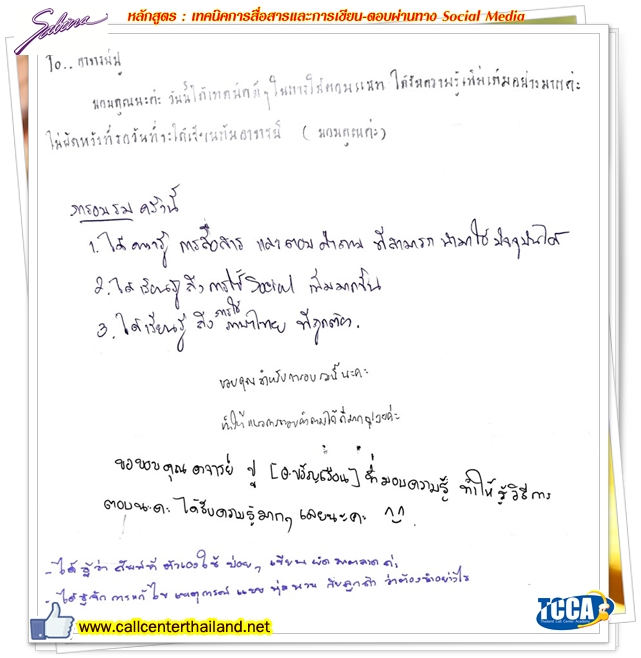 Sabina
หลักสูตร : เทคนิคการสื่อสารและการเขียน-ตอบผ่านทาง Social Media
To.. อาจารย์ปู
ขอบคุณนะคะ วันนี้ได้เทคนิคดีๆ ในการใช้ตอบแชท ได้รับความรู้เพิ่มเติมอย่างมากค่ะ
ไม่ผิดหวังที่รอวันที่จะได้เรียนกับอาจารย์ ( ขอบคุณค่ะ)
การอบรม ครั้งนี้
1. ได้ความรู้ การสื่อสาร และตอบคำถาม ที่สามารถ นำมาใช้ปัจจุบันได้
2. ได้เรียนรู้ ถึงการใช้ Social เพิ่มมากขึ้น
3. ได้เรียนรู้ ถึง การใช้ ภาษาไทย ที่ถูกต้อง.
ขอบคุณสำหรับการอบรมนี้นะคะ
ทำให้แนวการตอบคำถามได้ดีมากๆเลยค่ะ
ขอขอบคุณ อาจารย์ ปู [อ.ขวัญเรือน] ที่มอบความรู้ ทำให้ รู้วิธีการ
ตอบนะคะ ได้รับความรู้มากๆ เลยนะคะ ^^
- ได้รู้ว่า ศัพท์ที่ ตัวเองใช้ บ่อยๆ เขียน ผิด มาตลอดค่ะ
- ได้รู้จัก การแก้ไข เหตุการณ์ แบบ นุ่มนวล กับลูกค้า ว่าต้องทำอย่างไร
www.callcenterthailand.net
TCCA
Thailand Call Center Academy